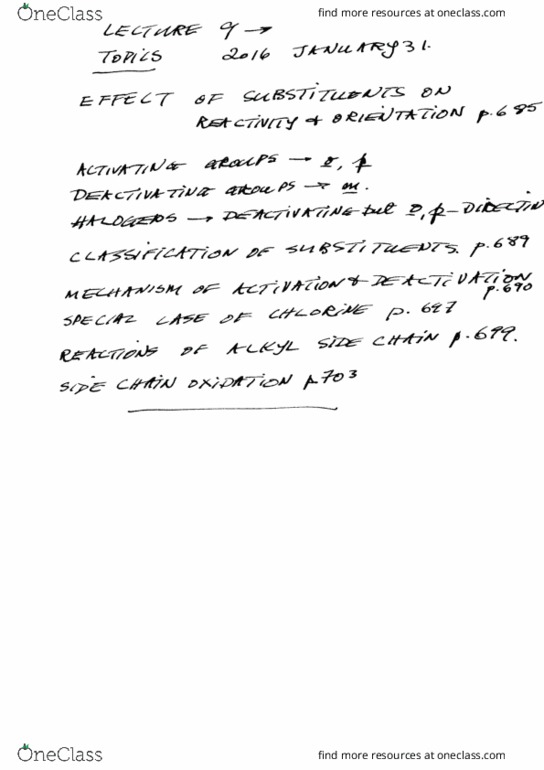 OneClass
find more resources at oneclass.com
LECTURE 9 →
TOPICS 2016 JANUARY 31.
EFFECT OF SUBSTITUENTS ON
REACTIVITY & ORIENTATION p.685
ACTIVATING GROUPS → o, p
DEACTIVATING GROUPS → m.
HALOGENS → DEACTIVATING but o, p-DIRECTIN
CLASSIFICATION OF SUBSTITUENTS. p.689
MECHANISM OF ACTIVATION & DEACTIVATION
p.690
SPECIAL CASE OF CHLORINE p. 697
REACTIONS OF ALKYL SIDE CHAIN p.699.
SIDE CHAIN OXIDATION p.703
OneClass
find more resources at oneclass.com